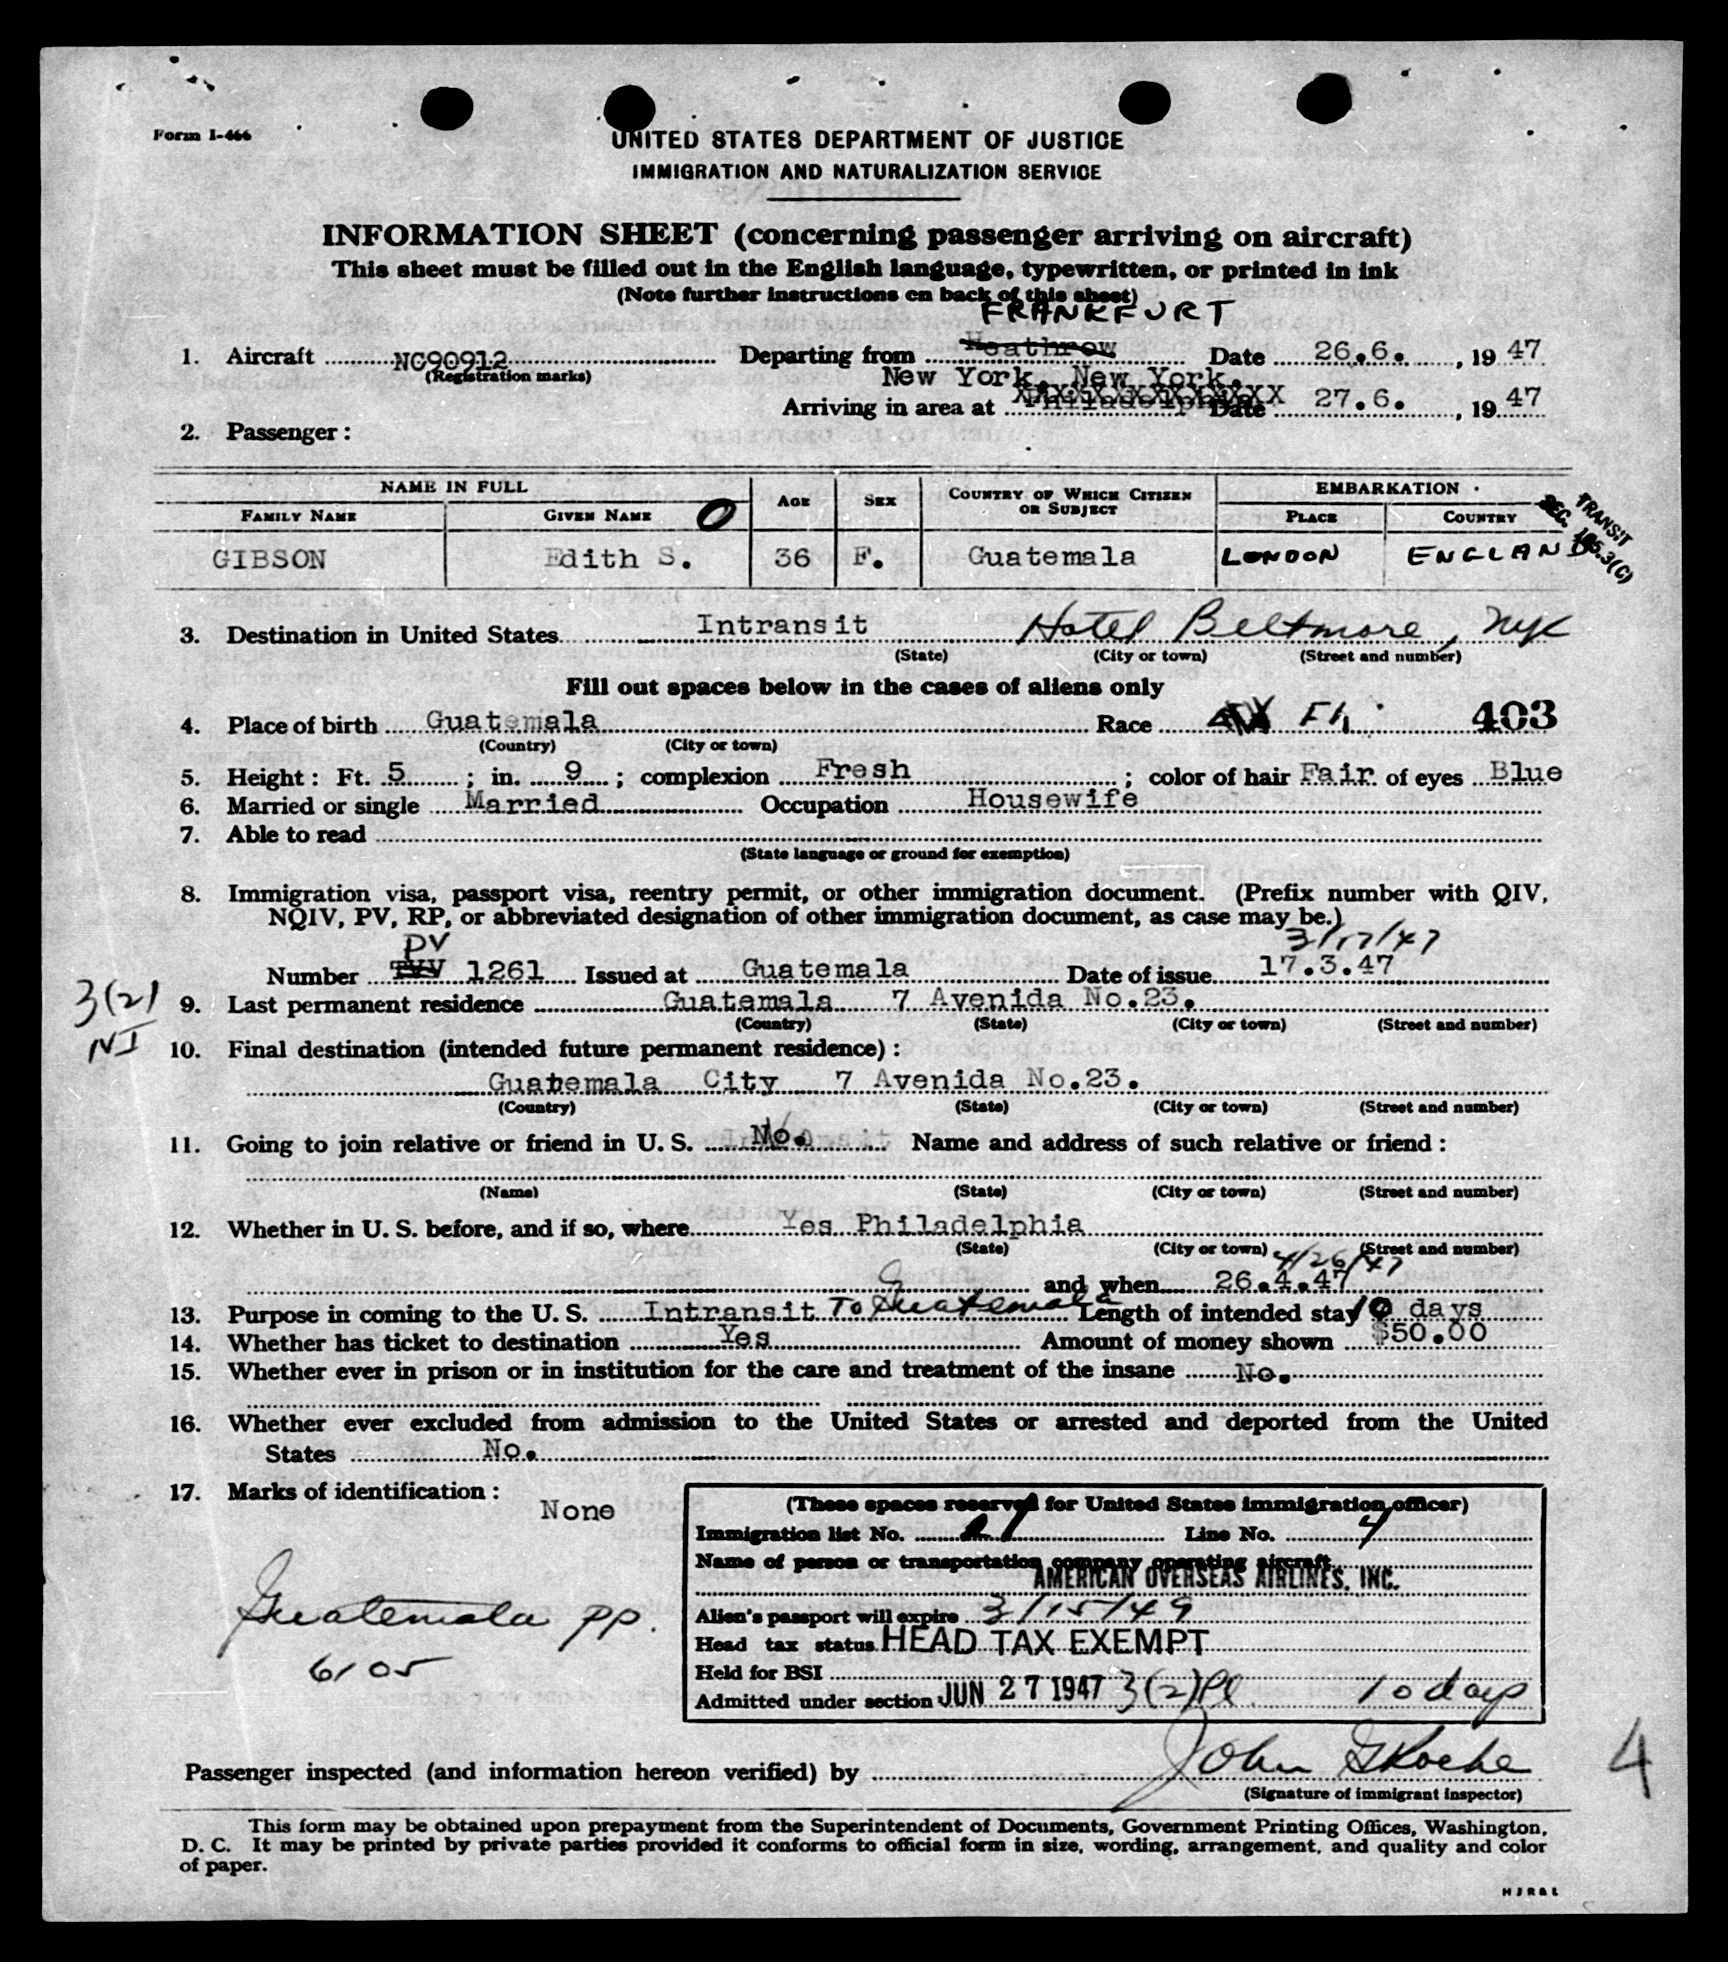 Form I-466
UNITED STATES DEPARTMENT OF JUSTICE
IMMIGRATION AND NATURALIZATION SERVICE
INFORMATION SHEET (concerning passenger arriving on aircraft)
This sheet must be filled out in the English language, typewritten, or printed in ink
(Note further instructions on back of this sheet)
FRANKFURT
1. Aircraft NC90912 Departing from Heathrow Date 26.6. , 19 47
(Registration marks)
New York, New York.
Arriving in area at Philadelphia Date 27.6. , 19 47
2. Passenger :
NAME IN FULL AGE SEX COUNTRY OF WHICH CITIZEN OR SUBJECT EMBARKATION
FAMILY NAME GIVEN NAME PLACE COUNTRY
TRANSIT
SEC. 165.3(C)
GIBSON Edith S. 36 F. Guatemala LONDON ENGLAND
3. Destination in United States Intransit Hotel Beltmore, NYC
(State) (City or town) (Street and number)
Fill out spaces below in the cases of aliens only
4. Place of birth Guatemala Race 403
(Country) (City or town)
5. Height : Ft. 5 ; in. 9 ; complexion Fresh ; color of hair Fair. of eyes Blue
6. Married or single Married Occupation Housewife
7. Able to read
(State language or ground for exemption)
8. Immigration visa, passport visa, reentry permit, or other immigration document. (Prefix number with QIV,
NQIV, PV, RP, or abbreviated designation of other immigration document, as case may be.)
PV 3/17/47
Number 1261 Issued at Guatemala Date of issue 17.3.47
3(2)
NI
9. Last permanent residence Guatemala 7 Avenida No.23.
(Country) (State) (City or town) (Street and number)
10. Final destination (intended future permanent residence) :
Guatemala City 7 Avenida No.23.
(Country) (State) (City or town) (Street and number)
11. Going to join relative or friend in U. S. No. Name and address of such relative or friend :
(Name) (State) (City or town) (Street and number)
12. Whether in U. S. before, and if so, where Yes Philadelphia
(State) (City or town) (Street and number)
4/26/47
and when 26.4.47
13. Purpose in coming to the U. S. Intransit To Guatemala Length of intended stay 10 days
14. Whether has ticket to destination Yes Amount of money shown $50.00
15. Whether ever in prison or in institution for the care and treatment of the insane No.
16. Whether ever excluded from admission to the United States or arrested and deported from the United
States No.
17. Marks of identification :
None
Guatemala pp.
6105
(These spaces reserved for United States immigration officer)
Immigration list No. Line No. 4
Name of person or transportation company operating aircraft
AMERICAN OVERSEAS AIRLINES, INC.
Alien's passport will expire 3/15/49
Head tax status HEAD TAX EXEMPT
Held for BSI
Admitted under section JUN 27 1947 3(2) Pl. 10 days
Passenger inspected (and information hereon verified) by John G Roche
4
(Signature of immigrant inspector)
This form may be obtained upon prepayment from the Superintendent of Documents, Government Printing Offices, Washington,
D. C. It may be printed by private parties provided it conforms to official form in size, wording, arrangement, and quality and color
of paper.